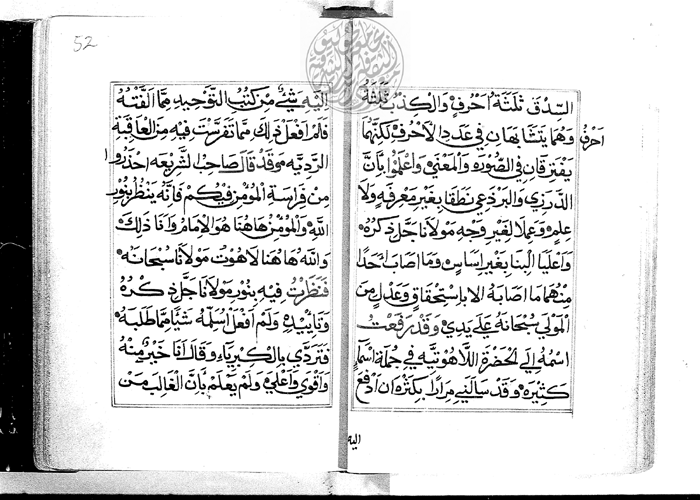 السدق ثلثة احرفٍ والكذب ثلثة
احرف وهما يتشابهان في عدد الاحرف لكنهما
يفترقان في الصّوره والمعنى واعلموا بان
الدرزي والبرذعي نطقا بغير معرفهٍ ولا
علمٍ وعملا لغير وجه مولانا جلّ ذكره
واعليا البنا بغير اساسٍ فما اصاب احدًا
منهما ما اصابه الا باستحقاقٍ وعدلٍ من
المولى سبحانه على يدي وقد رفعت
اسمه الى الحضرة اللاهوتيه في جملة اسمآٍ
كثيره وقد سالني مرارًا بكثره ان ادفع
اليه
52
اليه شيئ من كتب التوحيد ممّا الفته
فلم افعل ذلك مما تفرست فيه من العاقبة
الرديه وقد قال صاحب الشريعه احذروا
من فراسة المومن فيكم فانه ينظر بنور
الله والمومن هاهنا هو الامام وانا ذلك
والله هاهنا لاهوت مولانا سبحانه
فنظرت فيه بنور مولانا جل ذكره
وتاييده ولم افعل اسلمه شيًا مما طلبه
فتردى بالكبرياء وقال انا خير منه
واقوى واعلى ولم يعلم بان الغالب من